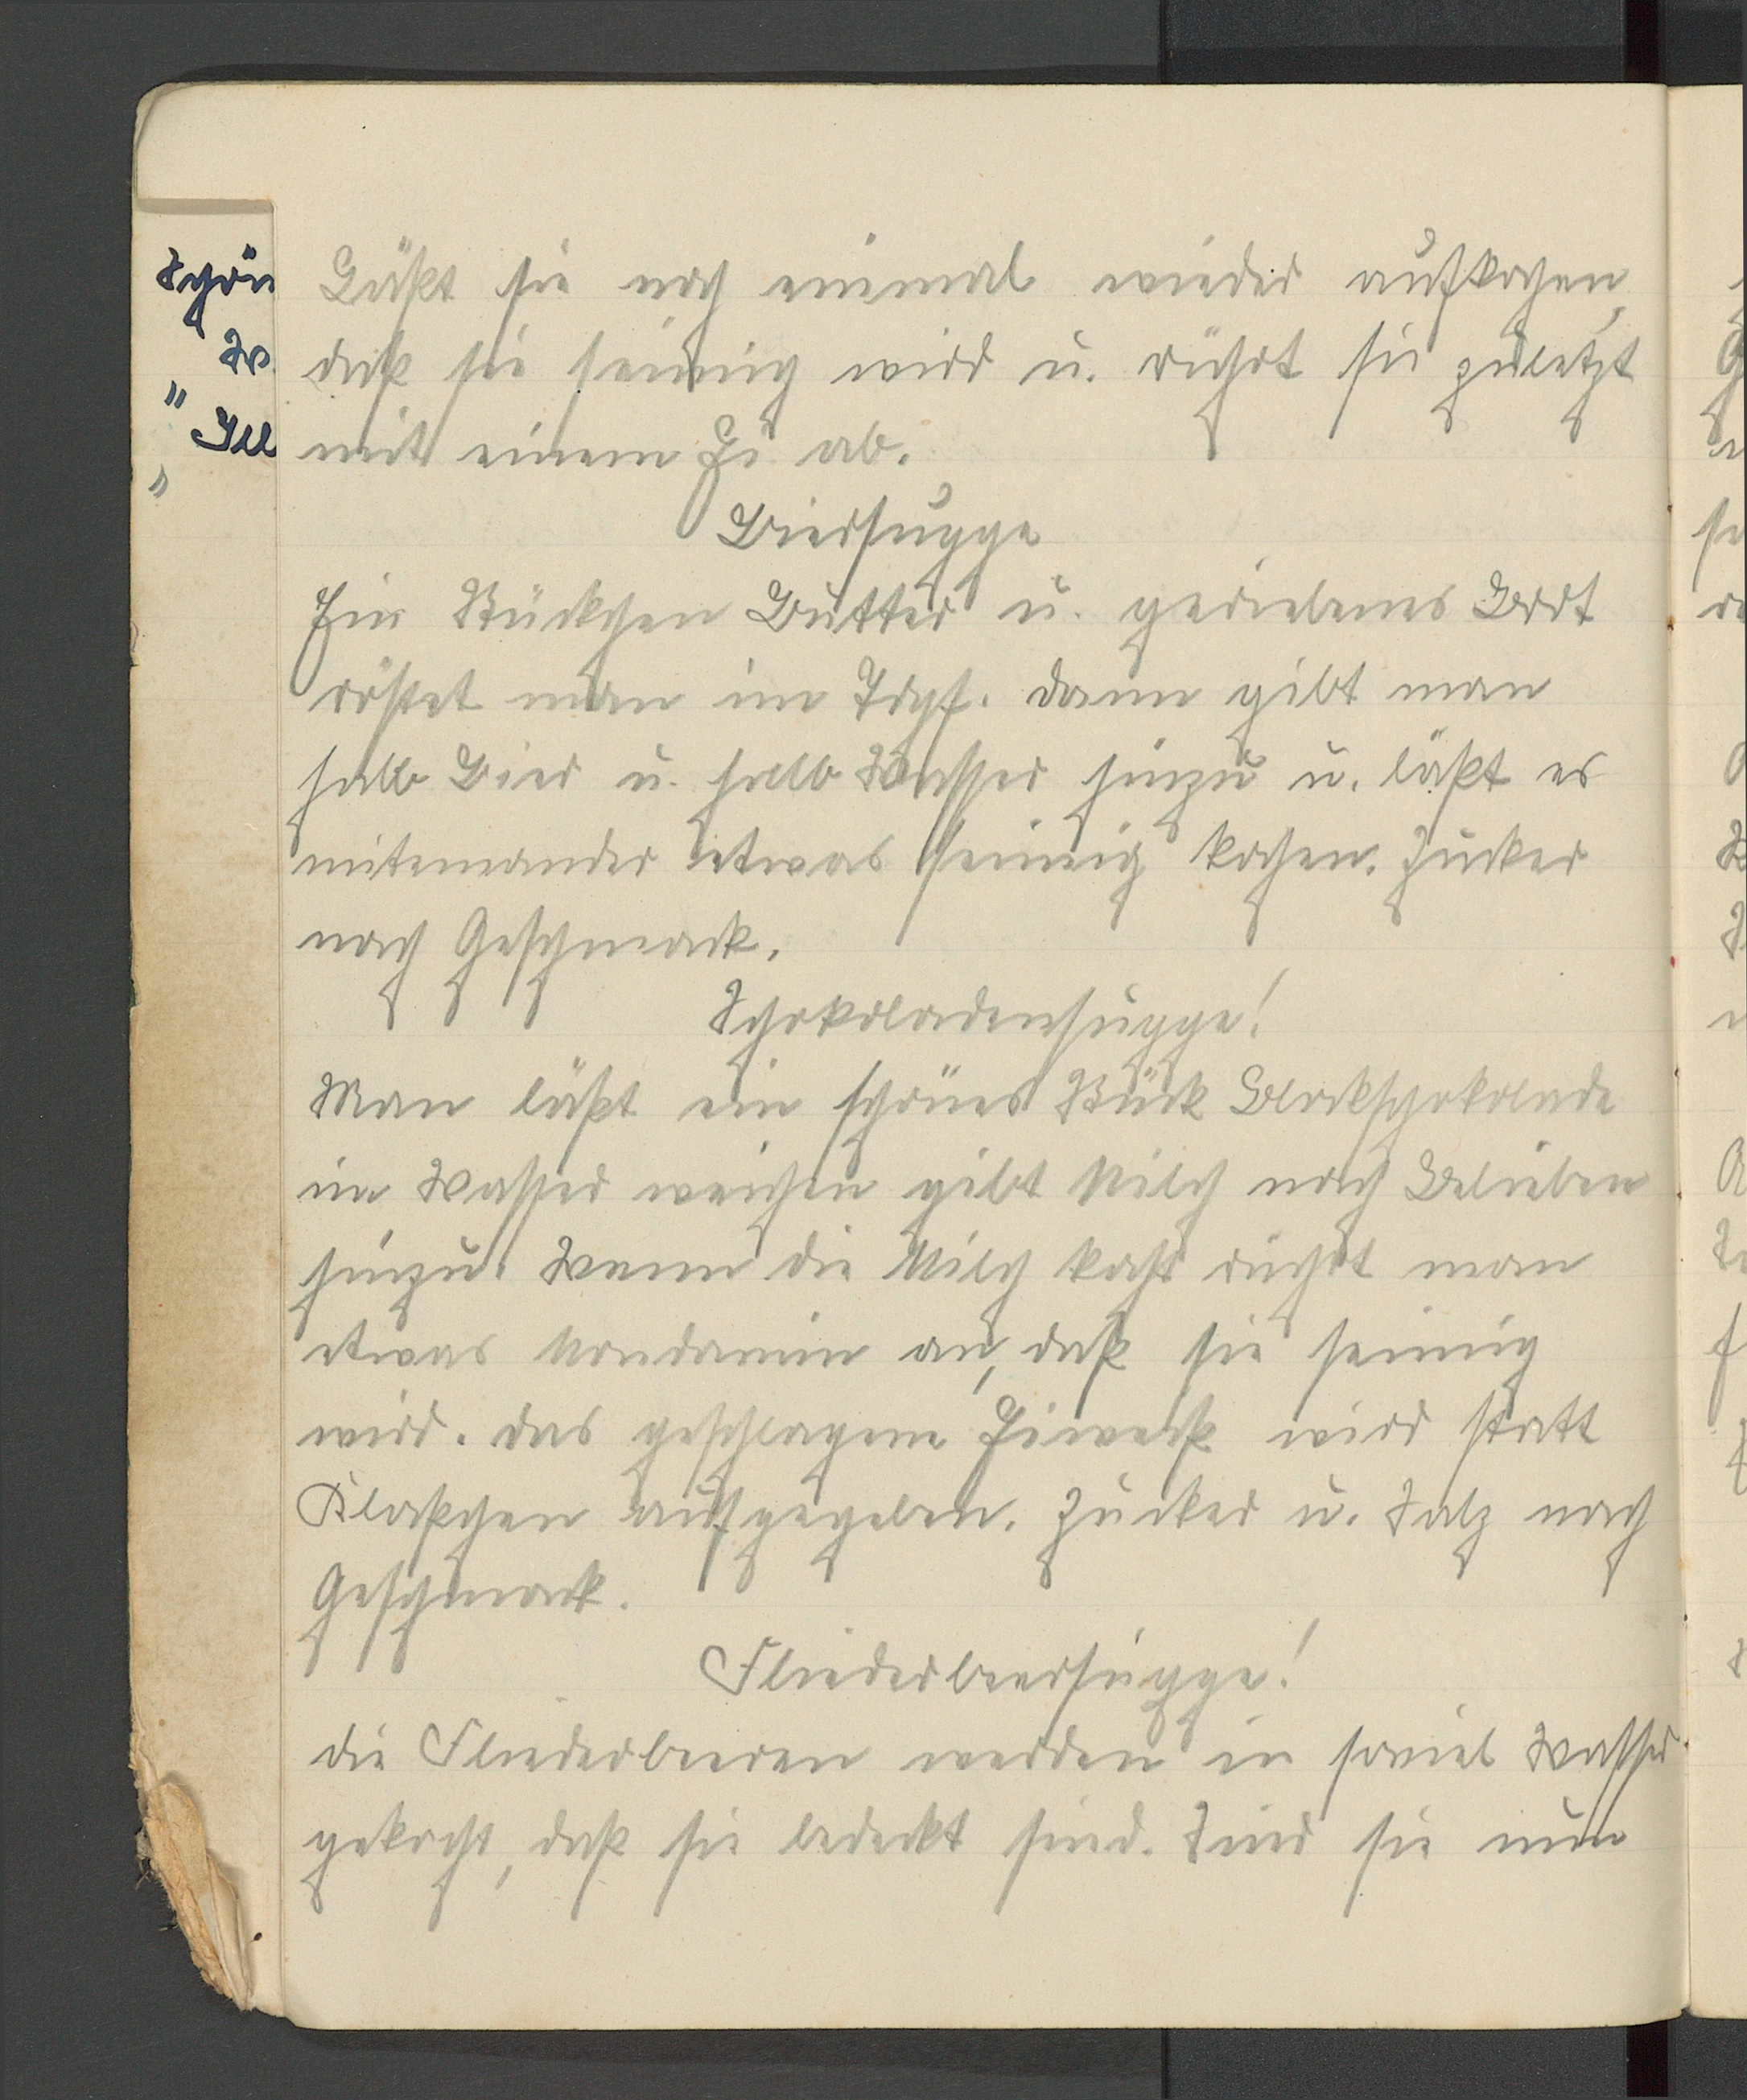 Läßt sie noch einmal wieder aufkochen,
daß sie seimig wird u. rührt sie zuletzt
mit einem Ei ab.
Biersuppe
Ein Stückchen Butter u. geriebenes Brot
röstet man im Topf. dann gibt man
halb Bier u. halb Wasser hinzu u. läßt es
miteinander etwas seimig kochen. Zucker
nach Geschmack.
Schokoladensuppe!
Man läßt ein schönes Stück Blockschokolade
im Wasser weichen gibt Milch nach Belieben
hinzu. Wenn die Milch kocht rührt man
etwas Mondamin an, daß sie seimig
wird. das geschlagene Eiweiß wird statt
Klößchen aufgegeben. Zucker u. Salz nach
Geschmack.
Fliederbeersuppe!
die Fliederbeeren werden in soviel Wasser
gekocht, daß sie bedeckt sind. Sind sie nun
Schön
W.
"
"